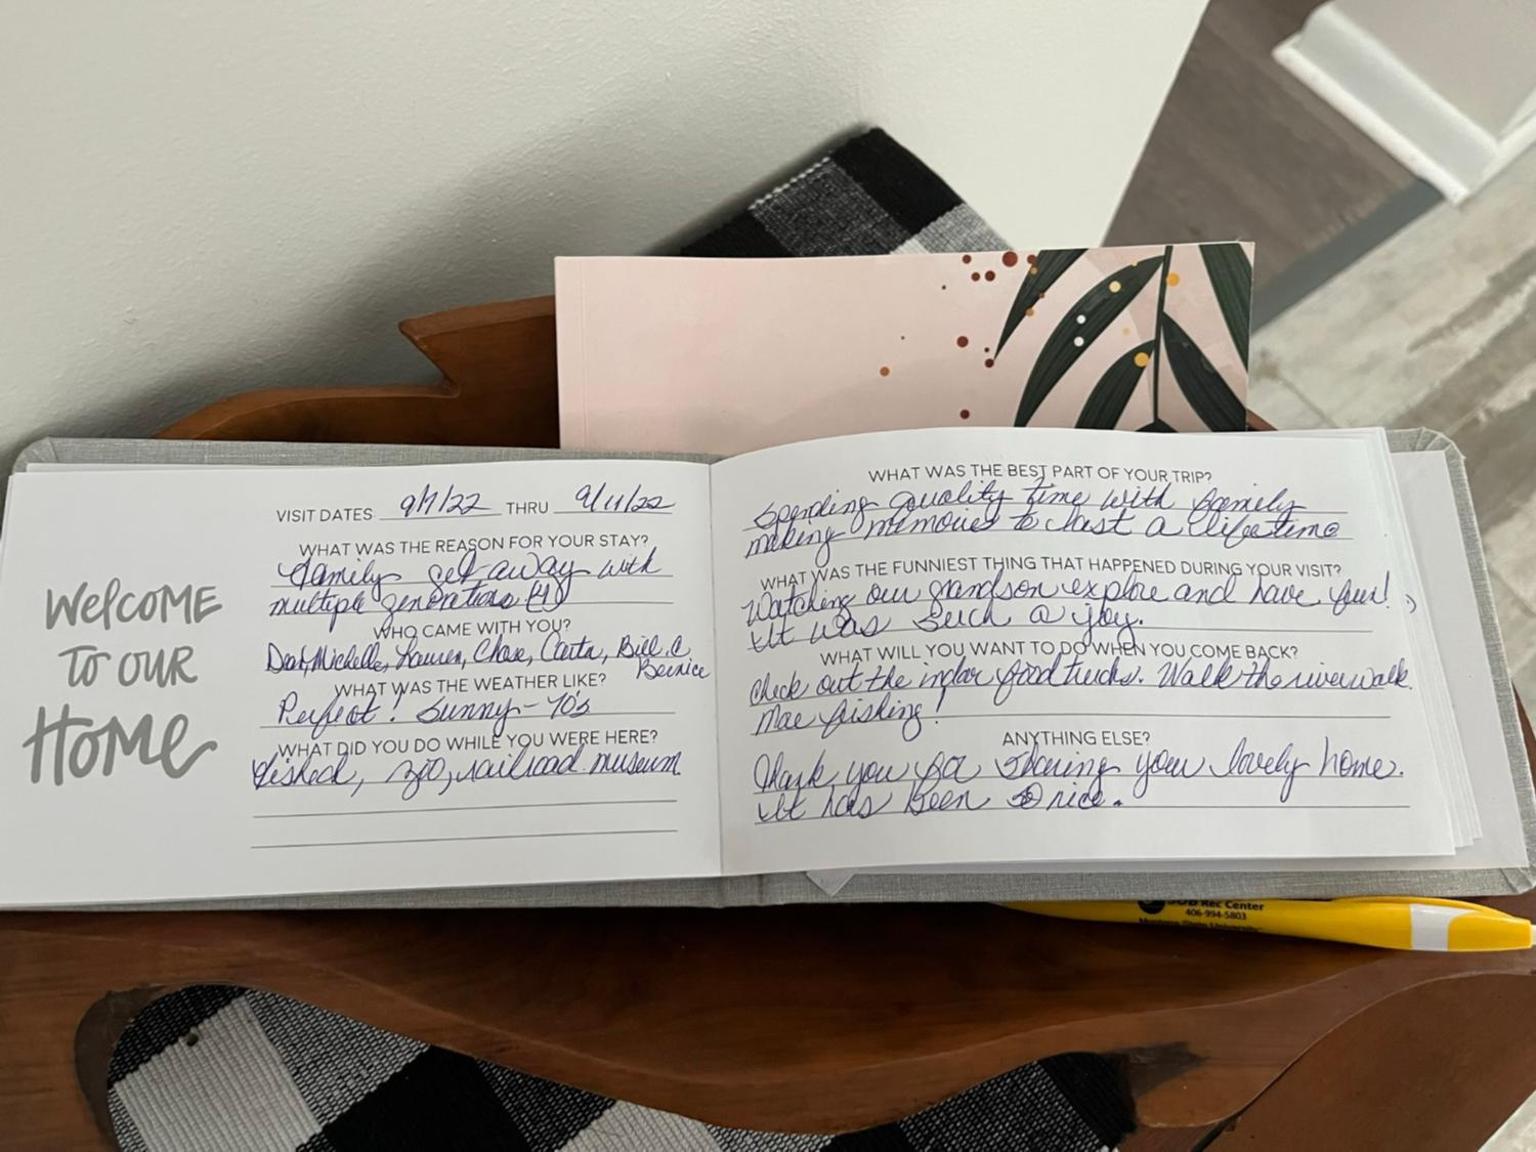 WELCOME
TO OUR
HOME
VISIT DATES 9/7/22 THRU 9/11/22
WHAT WAS THE REASON FOR YOUR STAY?
Family get-away with
multiple generations (4)
WHO CAME WITH YOU?
Michelle, Lauren, Chase, Bill &
Bernice
WHAT WAS THE WEATHER LIKE?
Perfect! Sunny - 70's
WHAT DID YOU DO WHILE YOU WERE HERE?
fished, zoo, railroad museum
WHAT WAS THE BEST PART OF YOUR TRIP?
Spending quality time with family
making memories to last a lifetime
WHAT WAS THE FUNNIEST THING THAT HAPPENED DURING YOUR VISIT?
Watching our grandson explore and have fun! :)
It was such a joy.
WHAT WILL YOU WANT TO DO WHEN YOU COME BACK?
Check out the indoor food trucks. Walk the riverwalk.
More fishing!
ANYTHING ELSE?
Thank you for sharing your lovely home.
It has been so nice.
Rec Center
406-994-5803